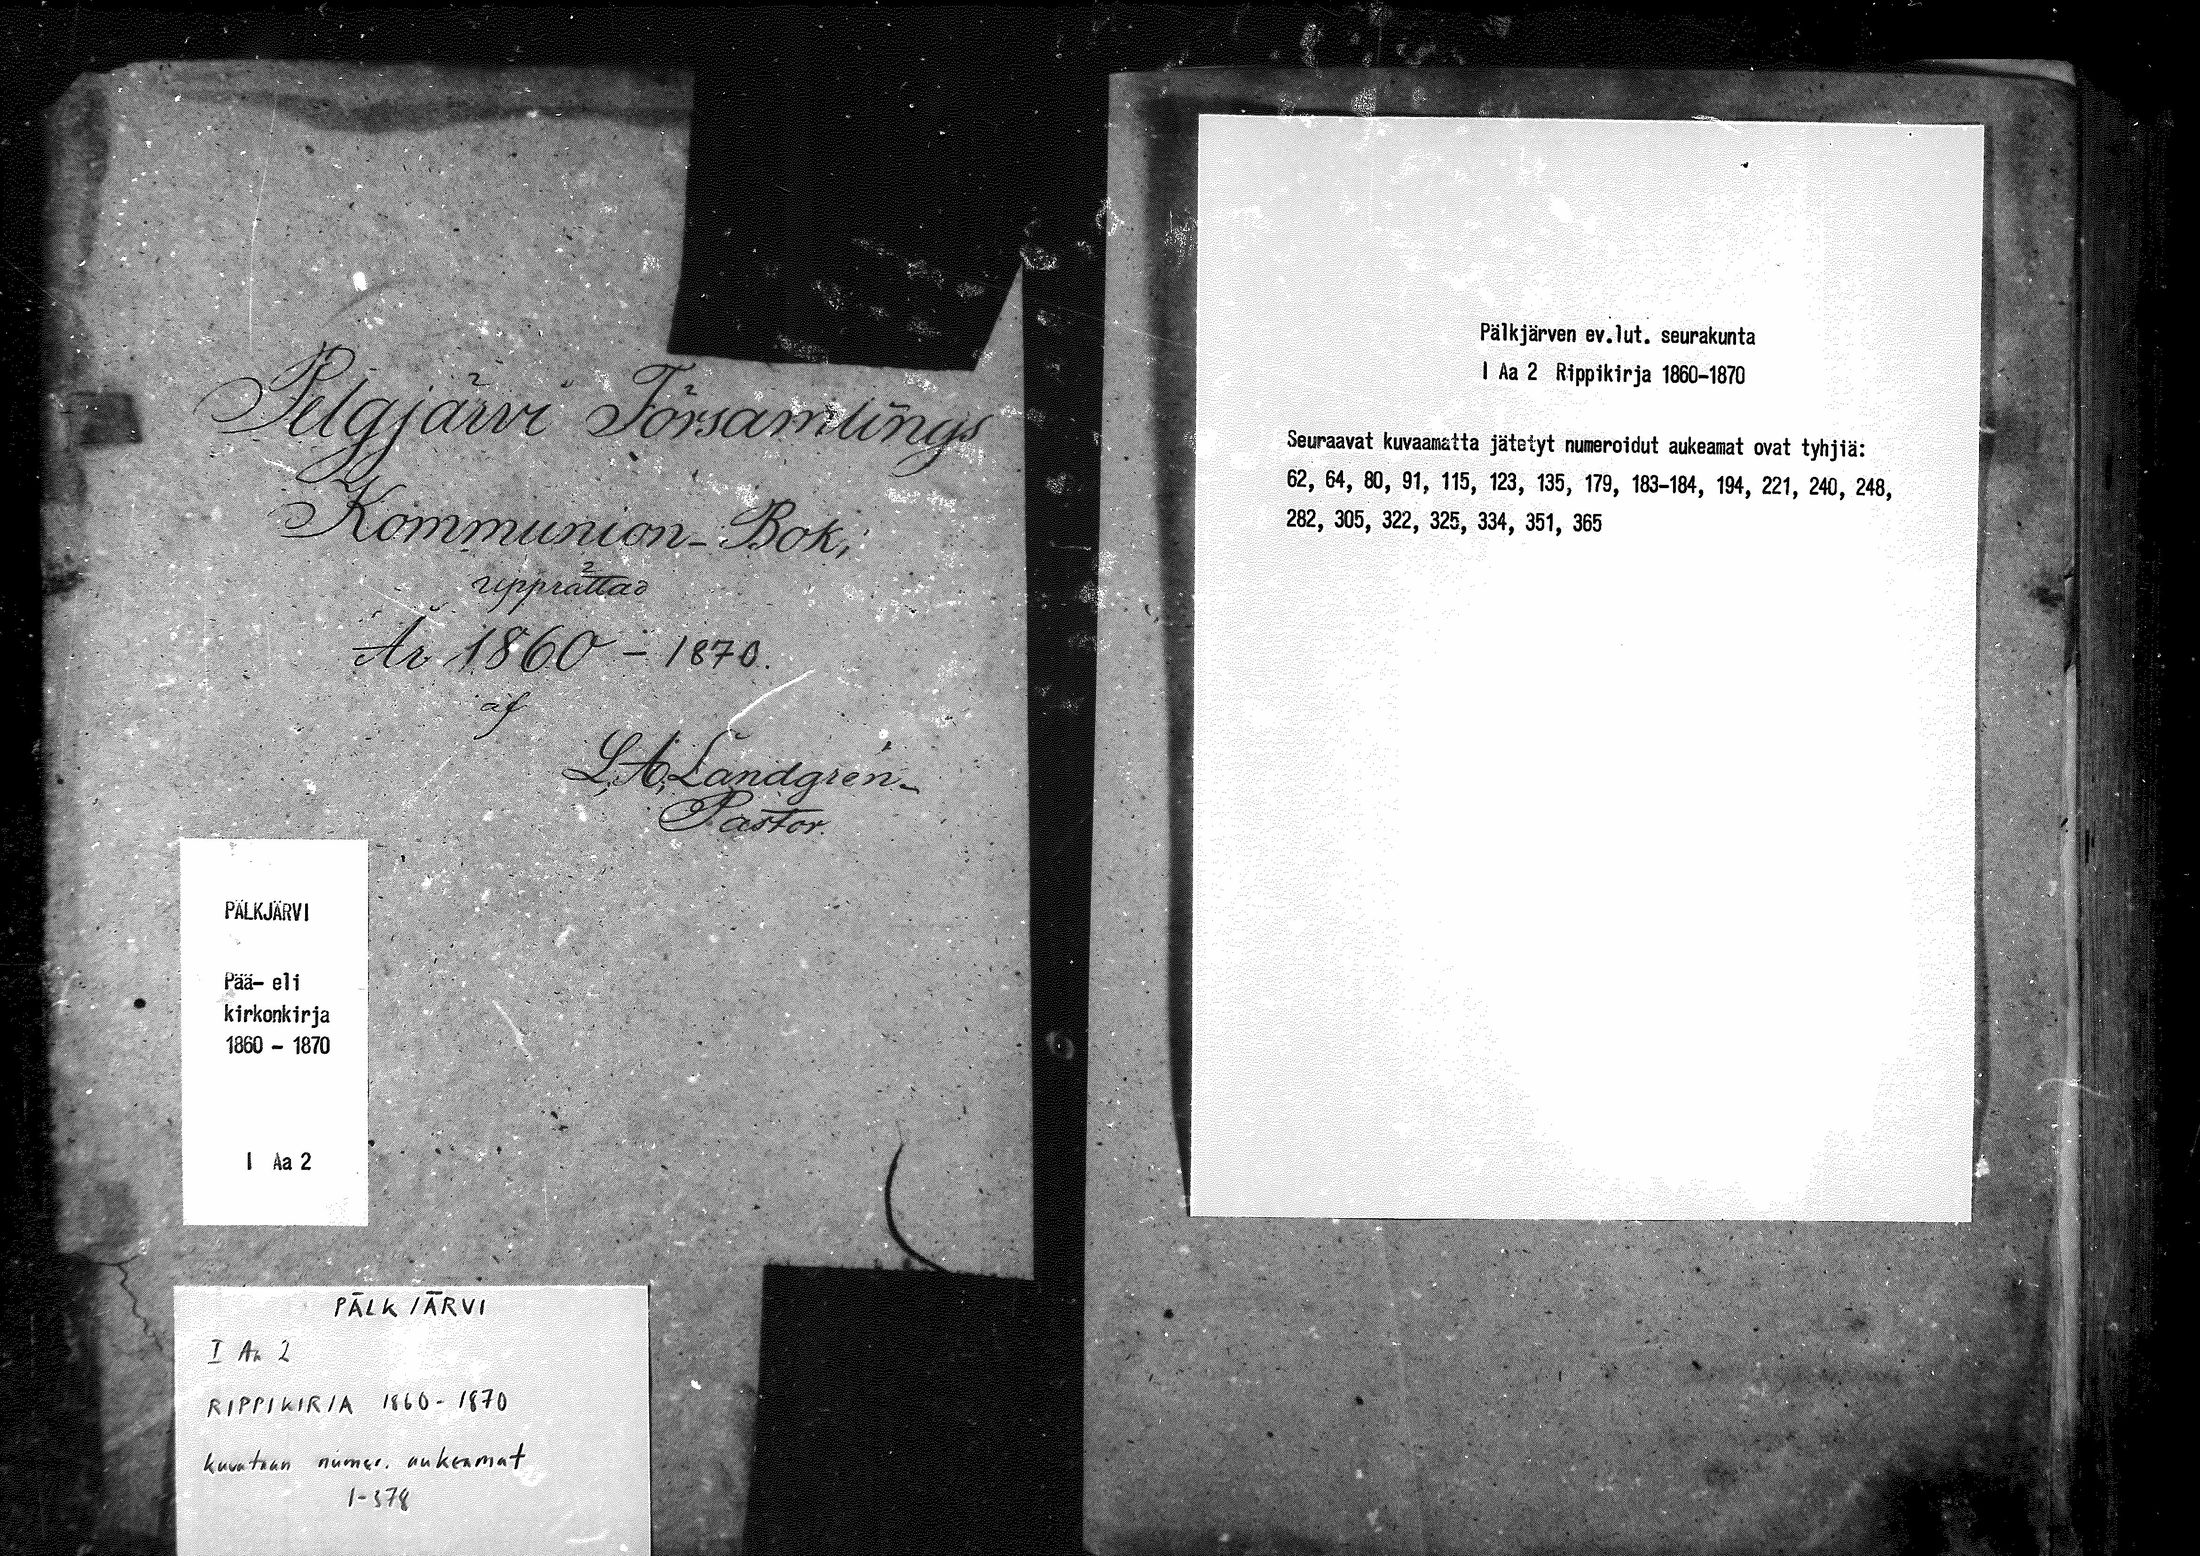 Pelgjärvi Församlings
Kommunion-Bok,
upprättad
År 1860 - 1870.
af
L, A, Landgrén
Pastor.
PÄLKJÄRVI
Pää- eli
kirkonkirja
1860 - 1870
I Aa 2
PÄLKJÄRVI
I Aa 2
RIPPIKIRJA 1860-1870
kuvataan numer. aukeamat
1-378
Pälkjärven ev.lut. seurakunta
I Aa 2 Rippikirja 1860-1870
Seuraavat kuvaamatta jätetyt numeroidut aukeamat ovat tyhjiä:
62, 64, 80, 91, 115, 123, 135, 179, 183-184, 194, 221, 240, 248,
282, 305, 322, 325, 334, 351, 365